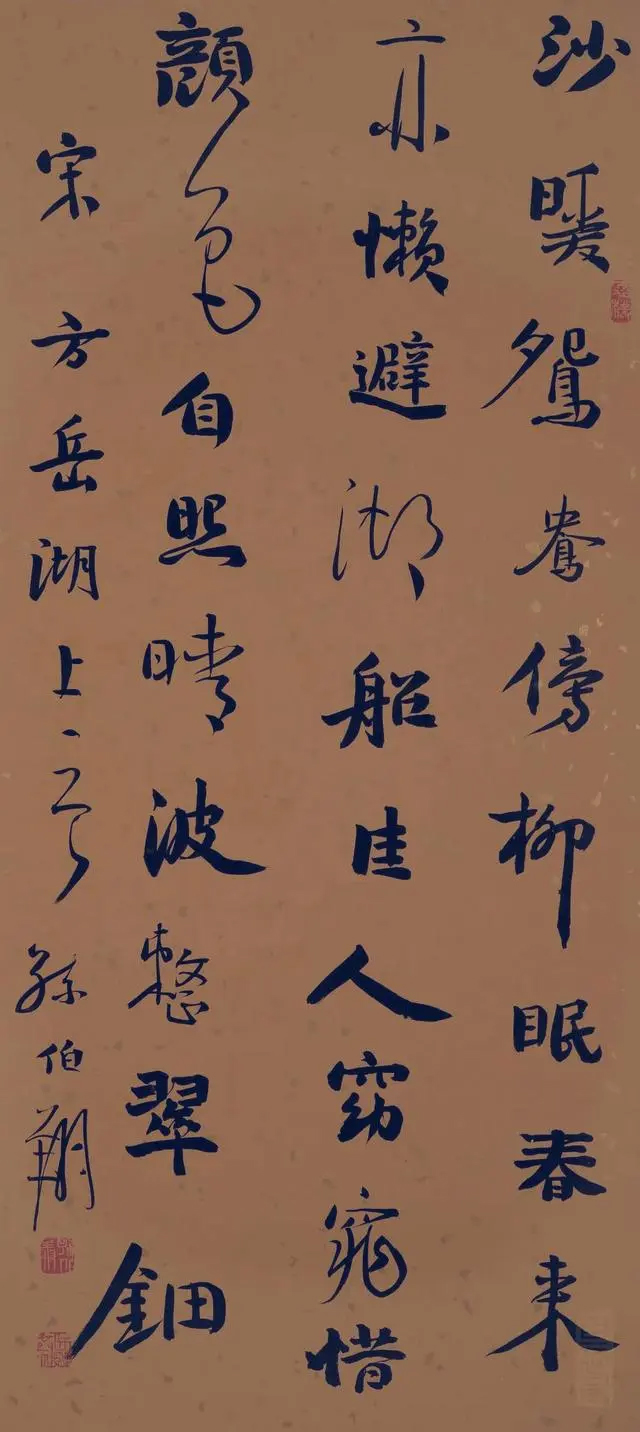 沙暖鴛鴦傍柳眠春来
亦懶避湖船佳人窈窕惜
顔色自照晴波整翠鈿
宋方岳湖上一首
孫伯翔